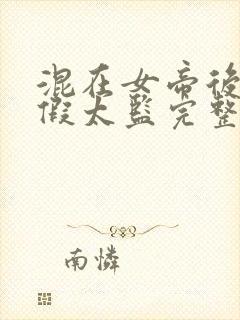 混在女帝後
假太監完整
南憐